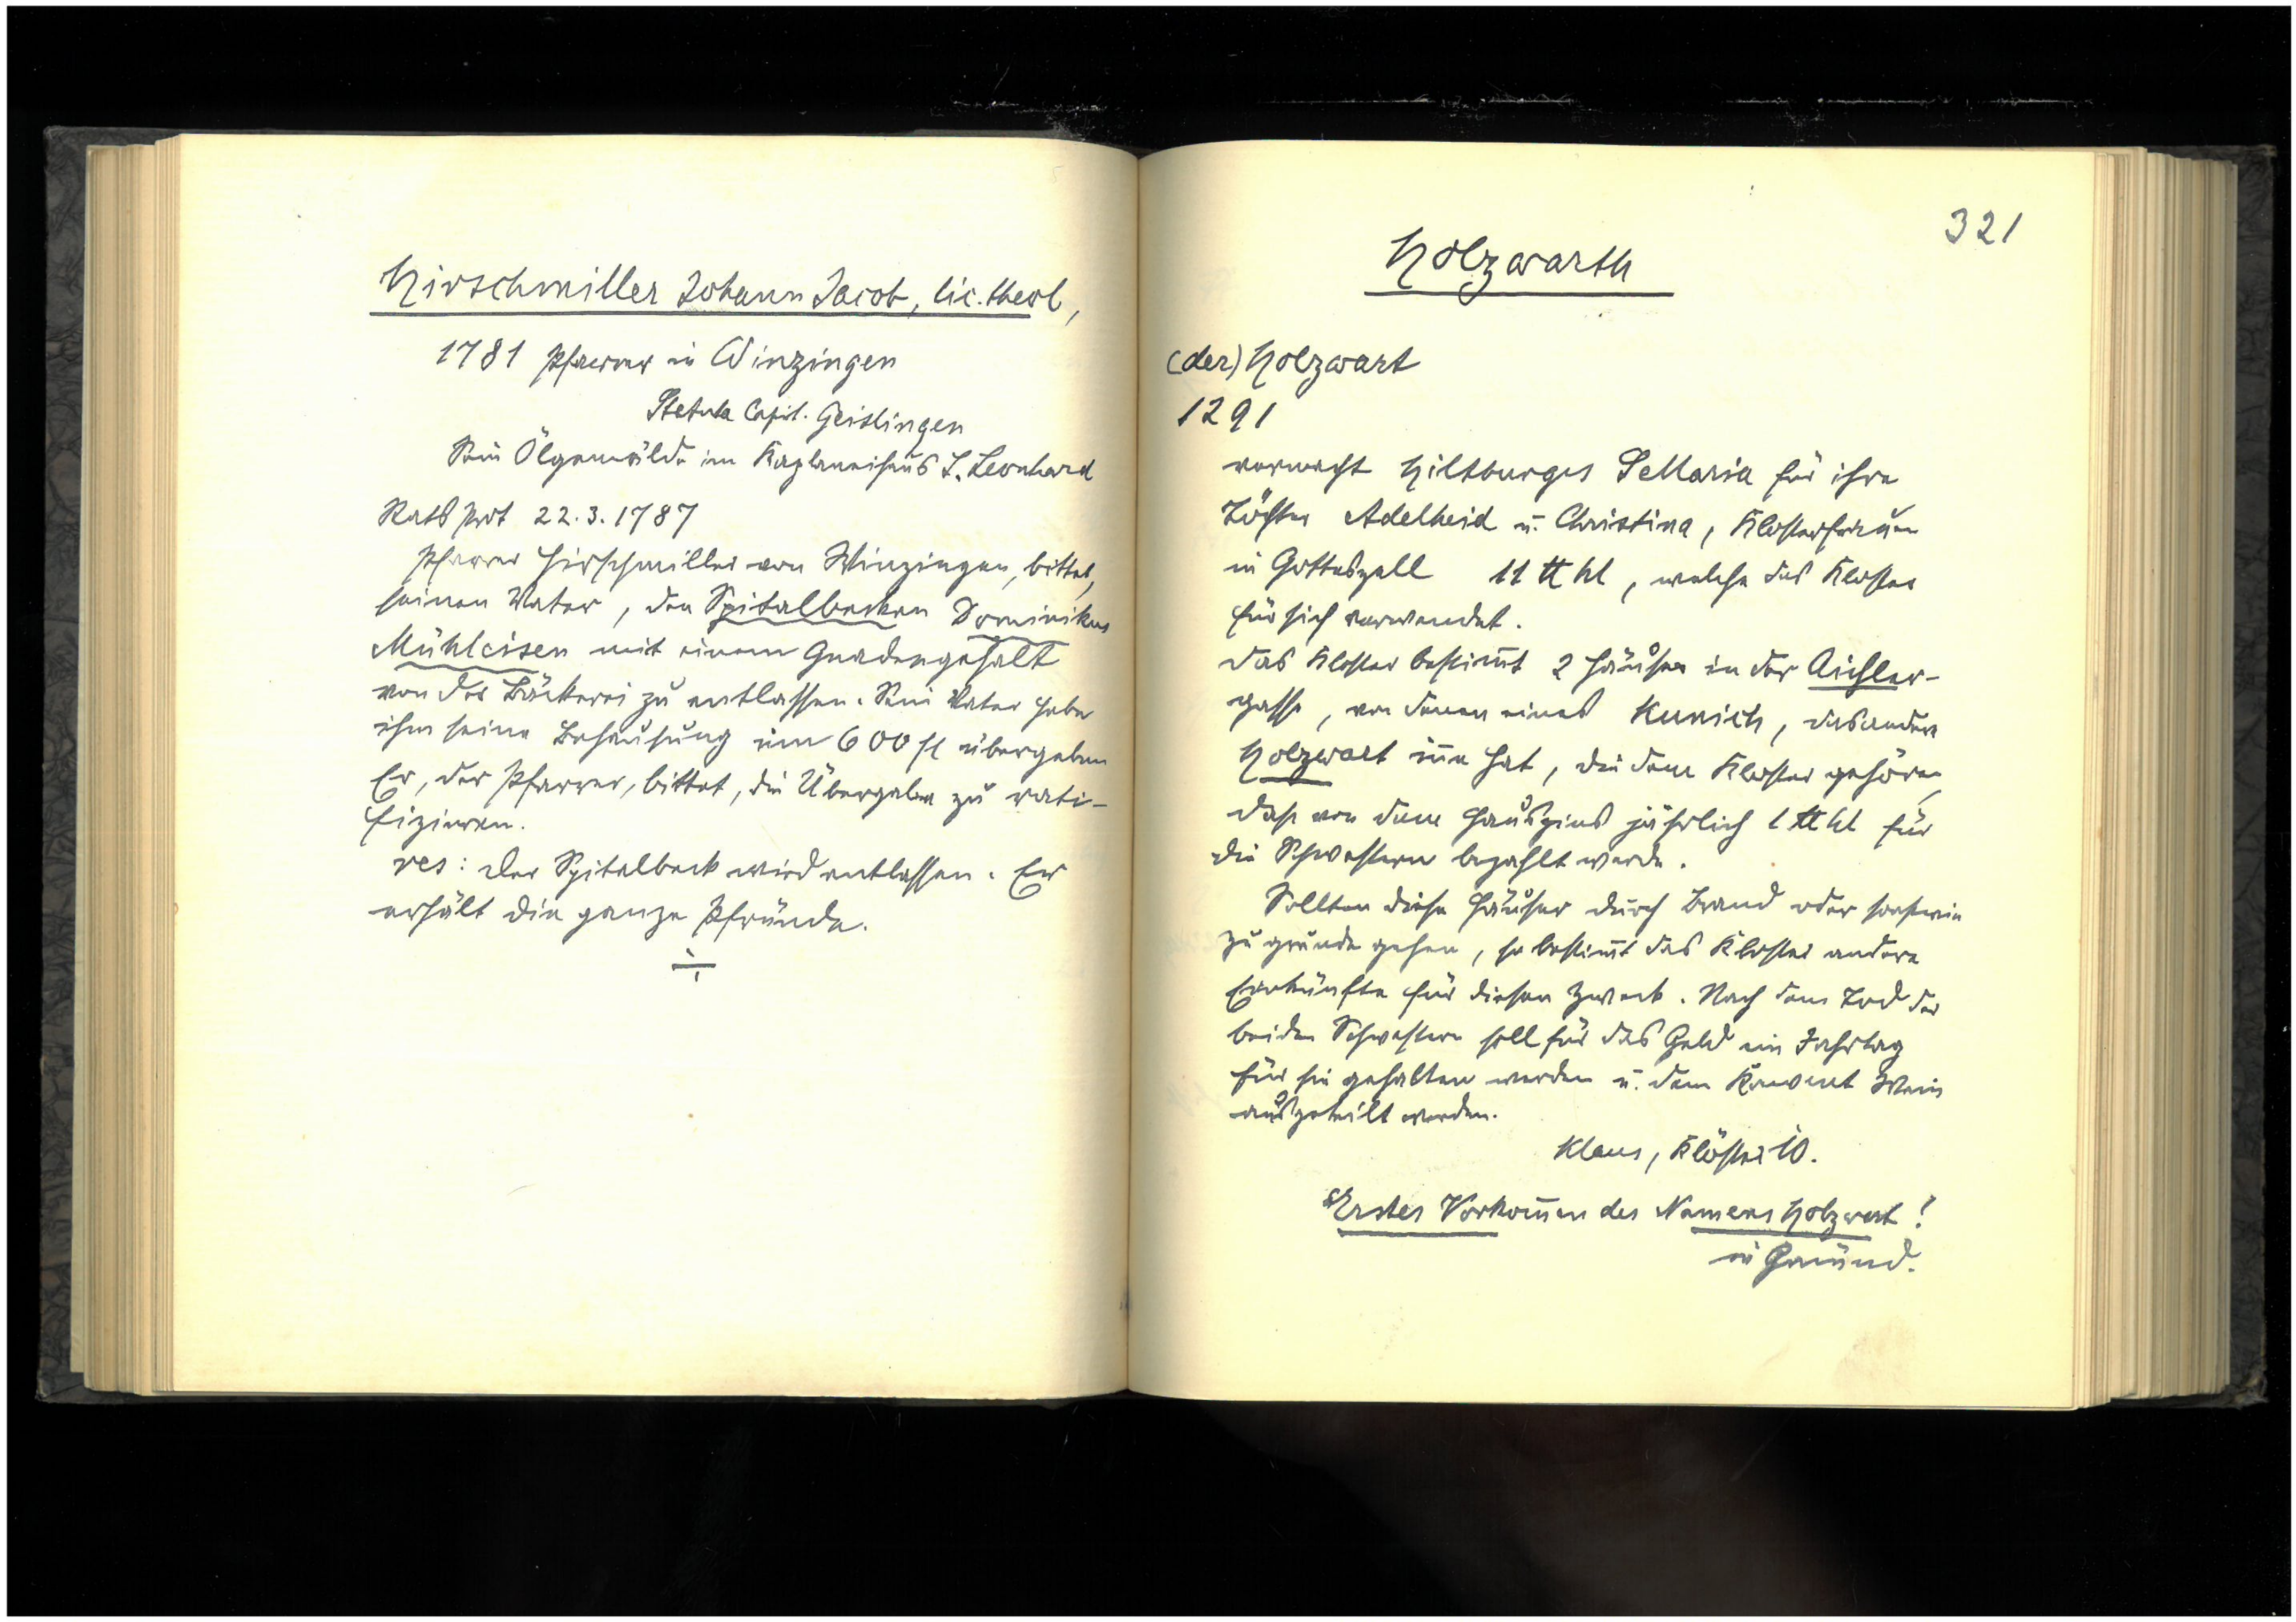 Hirschmiller Johann Jacob, lic. theol,
1781 Pfarrer in Winzingen
Statuta Capit. Geislingen
Sein Ölgemälde im Kaplaneihaus S. Leonhard
Rats Prot 22.3.1787
Pfarrer Hirschmiller von Winzingen, bittet,
seinen Vater, den Spitalbecken Dominikus
Mühleisen mit einem Gnadengehalt
von der Bäckerei zu entlassen. Sein Vater habe
ihm seine Behausung um 600 fl übergeben
Er, der Pfarrer, bittet, die Übergabe zu rati-
fizieren.
res: der Spitalbeck wird entlassen. Er
erhält die ganze Pfründe.
321
Holzwarth
(der) Holzwart
1291
vermacht Hiltburges SeMaria für ihre
Töchter Adelheid u. Christina, Klosterfrauen
in Gotteszell 11 ℔ hl, welche das Kloster
für sich verwendet.
Das Kloster bestim̄t 2 Häuser in der Aichler-
gasse, von denen eines Kunich, das andere
Holzwart in̄e hat, die dem Kloster gehören,
daß von dem Hauszins jährlich 1 ℔ hl für
die Schwestern bezahlt werde.
Sollten diese Häuser durch Brand oder sonstwie
zu grunde gehen, so bestim̄t das Kloster andere
Einkünfte für diesen Zweck. Nach dem Tod der
beiden Schwestern soll für das Geld ein Jahrtag
für sie gehalten werden u. dem Konvent Wein
ausgeteilt werden.
Klaus, Klöster 10.
Erstes Vorkom̄en des Namens Holzwart!
in Gmünd.